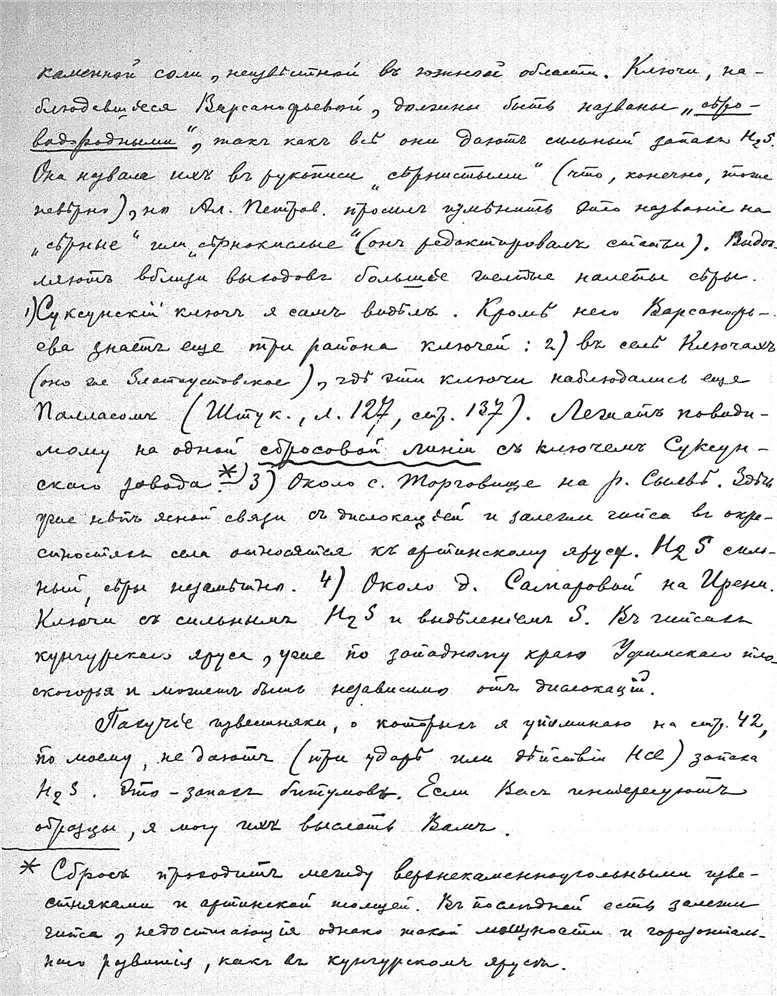 каменной соли, неизвѣстной въ южной области. Ключи, на-
блюдавшіеся Варсанофьевой, должны быть названы „сѣро-
водородными“, такъ какъ всѣ они даютъ сильный запахъ H2S.
Она назвала ихъ въ рукописи „сѣрнистыми“ (что, конечно, тоже
невѣрно), но Ал. Петров. просилъ измѣнить это названіе на
„сѣрные“ или „сѣрнокислые“ (онъ редактировалъ статьи). Выдѣ-
ляютъ вблизи выходовъ большіе желтые налеты сѣры.
1) Суксунскій ключъ я самъ видѣлъ. Кромѣ него Варсанофь-
ева знаетъ еще три района ключей: 2) въ селѣ Ключахъ
(оно же Златоустовское), гдѣ эти ключи наблюдались еще
Палласомъ (Штук., л. 127, стр. 137). Лежатъ повиди-
мому на одной сбросовой линіи съ ключемъ Суксун-
скаго завода *) 3) Около с. Торговище на р. Сылвѣ. Здѣсь
уже нѣтъ ясной связи съ дислокаціей и залежи гипса въ окре-
стностяхъ села относятся къ артинскому ярусу. H2S силь-
ный, сѣры незамѣтно. 4) Около д. Самаровой на Ирени.
Ключи съ сильнымъ H2S и выдѣленіемъ S. Въ гипсахъ
кунгурскаго яруса, уже по западному краю Уфимскаго пло-
скогорья и можетъ быть независимо отъ дислокацій.
Пахучіе известняки, о которыхъ я упоминаю на стр. 42,
по моему, не даютъ (при ударѣ или дѣйствіи HCl) запаха
H2S. Это - запахъ битумовъ. Если Васъ интересуютъ
образцы, я могу ихъ выслать Вамъ.
* Сбросъ проходитъ между верхнекаменноугольными изве-
стняками и артинской толщей. Въ послѣдней есть залежи
гипса, недостигающія однако такой мощности и горизонталь-
наго развитія, какъ въ кунгурскомъ ярусѣ.